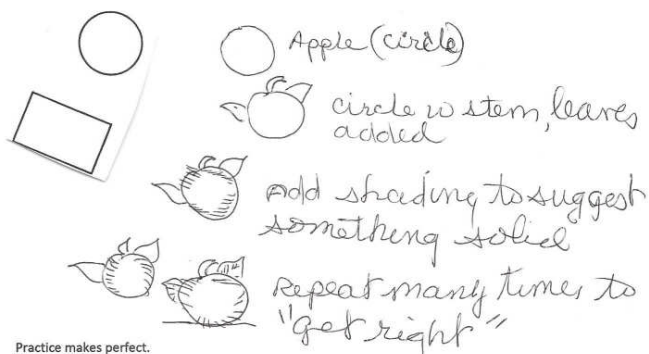 Apple (circle)
circle w stem, leaves
added
Add shading to suggest
something solid
Repeat many times to
"get right"
Practice makes perfect.